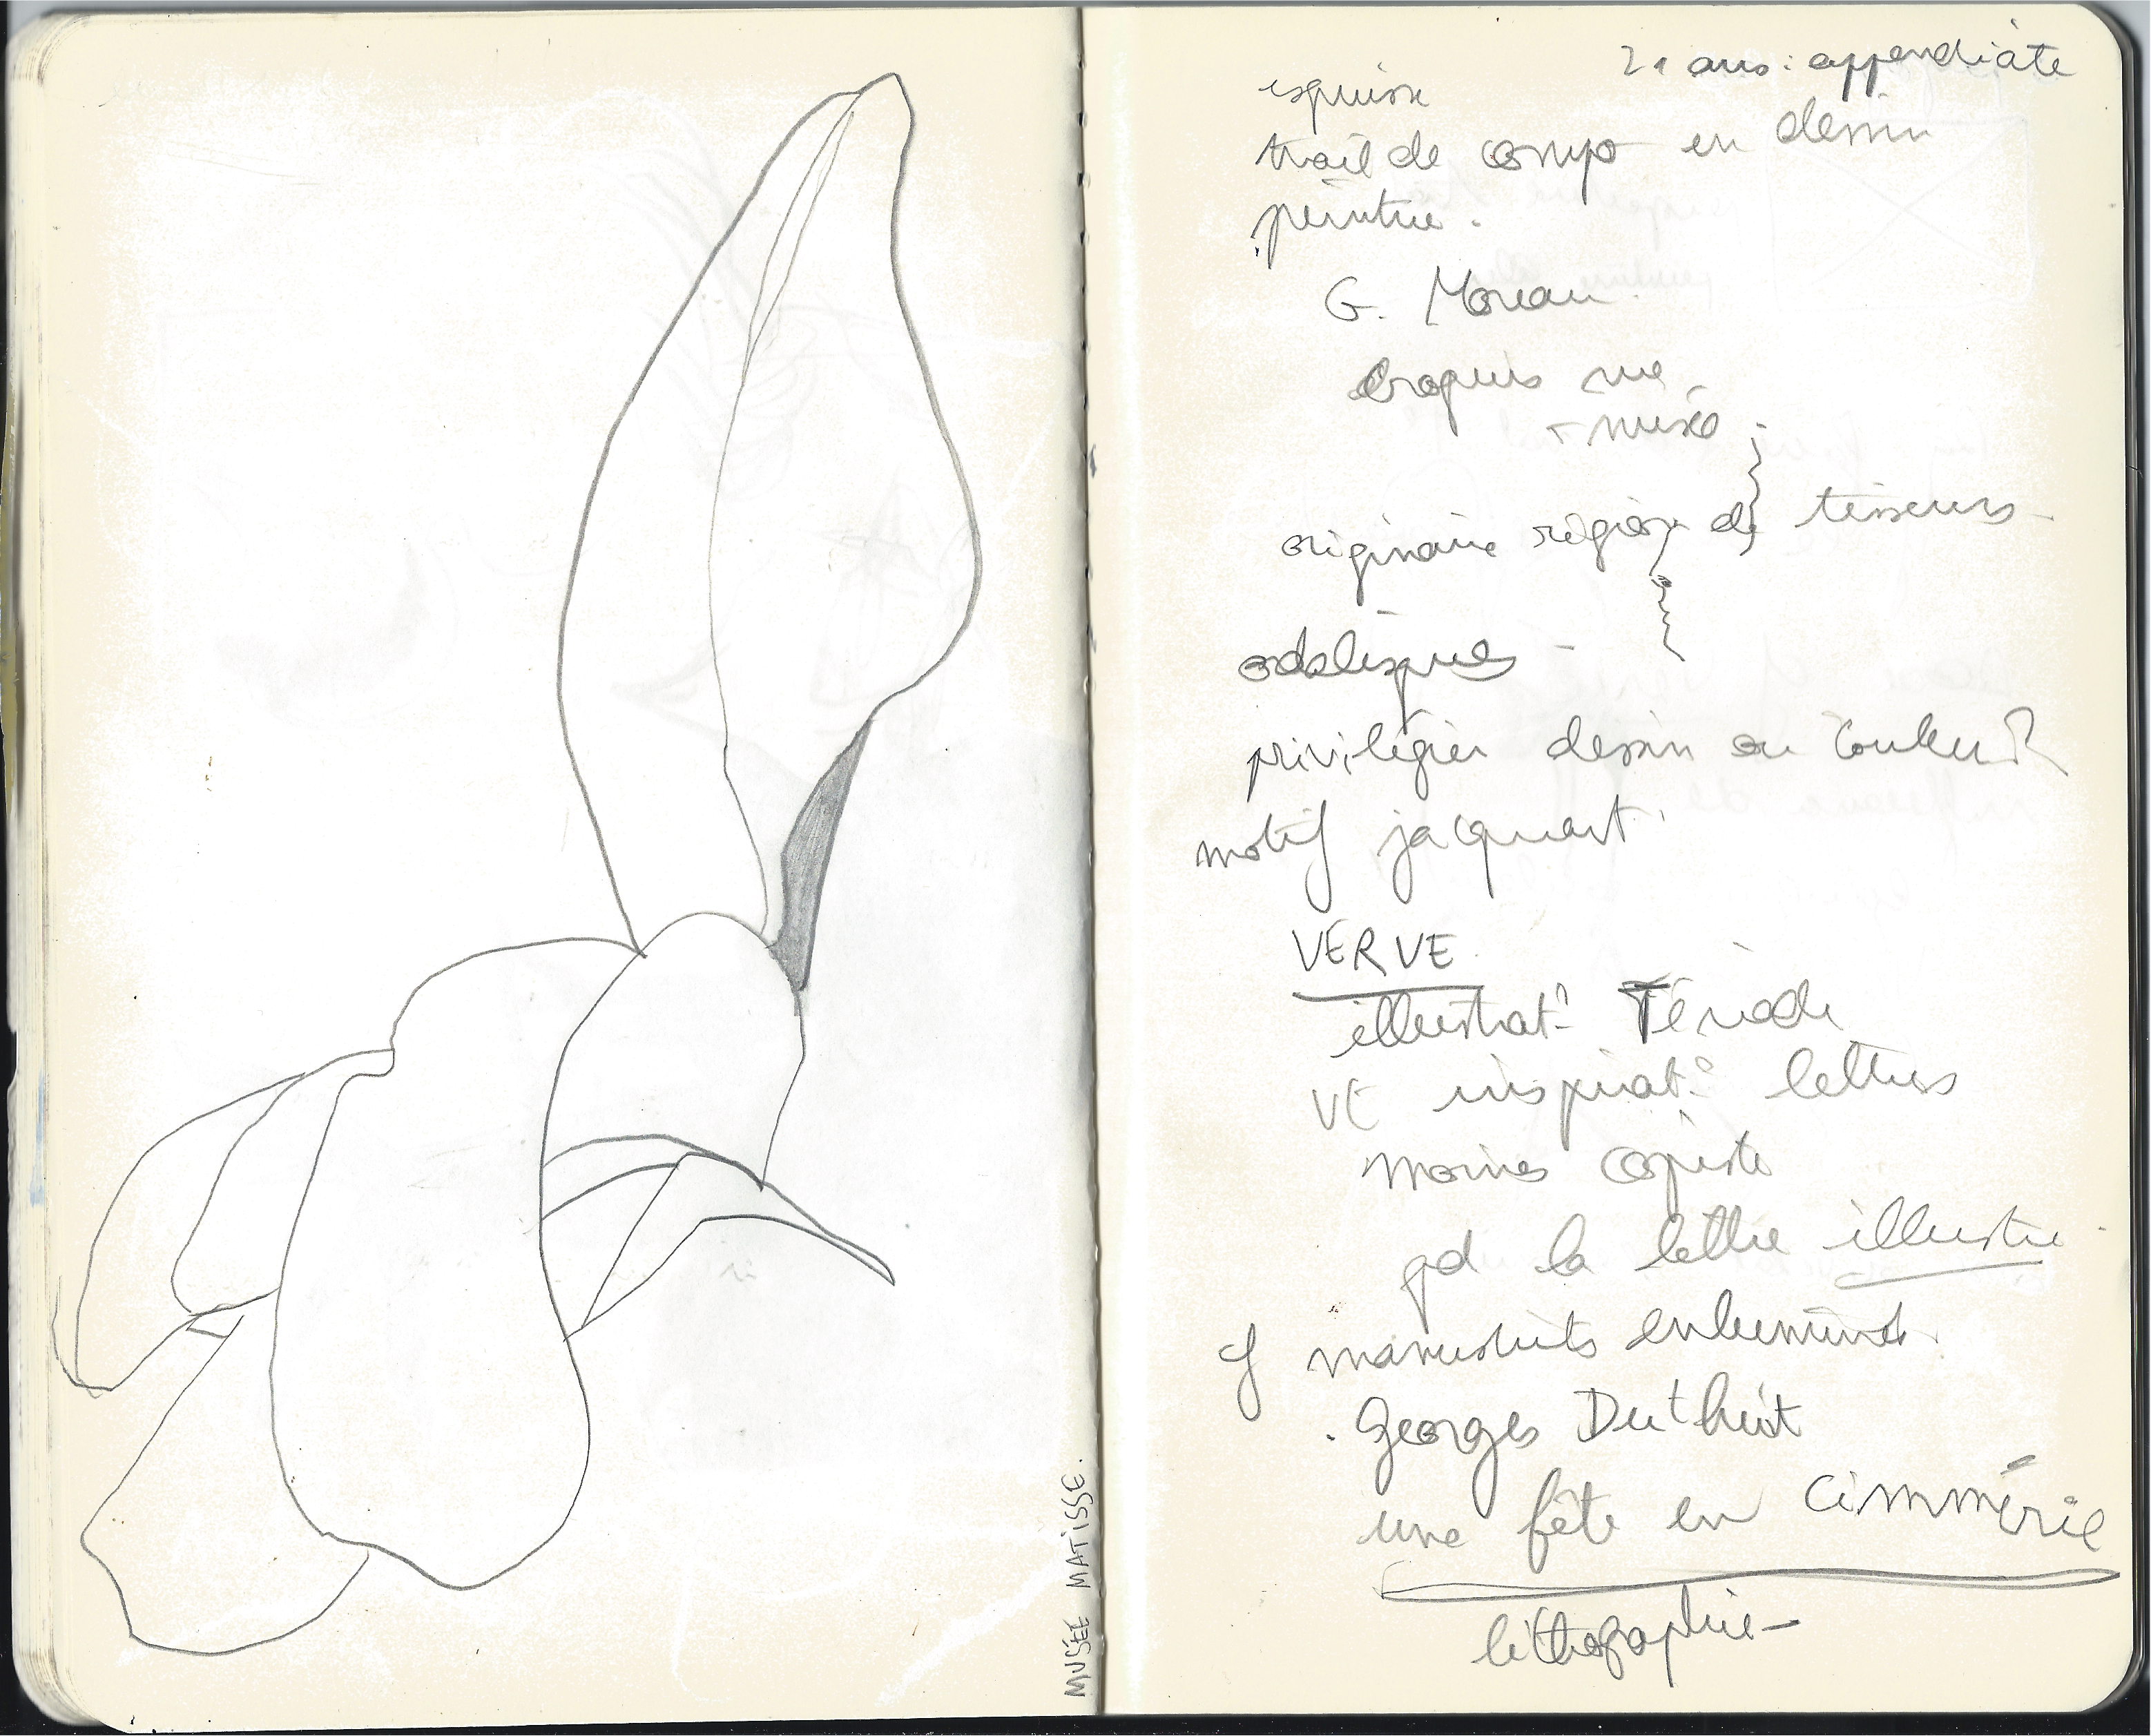 MUSÉE MATISSE.
21 ans : appendicite
esquisse
trait de compo en dessin
peinture.
G. Moreau.
Croquis rue
+ musée
originaire région de tisseurs
odalisques
privilégier dessin ou couleur ?
motif jacquart.
VERVE
illustrat° Tériade
VE inspirat° lettres
moines copiste
qd la lettre illustre
cf manuscrits enluminés.
. Georges Duthuit
une fête en Cimmérie
lithographie